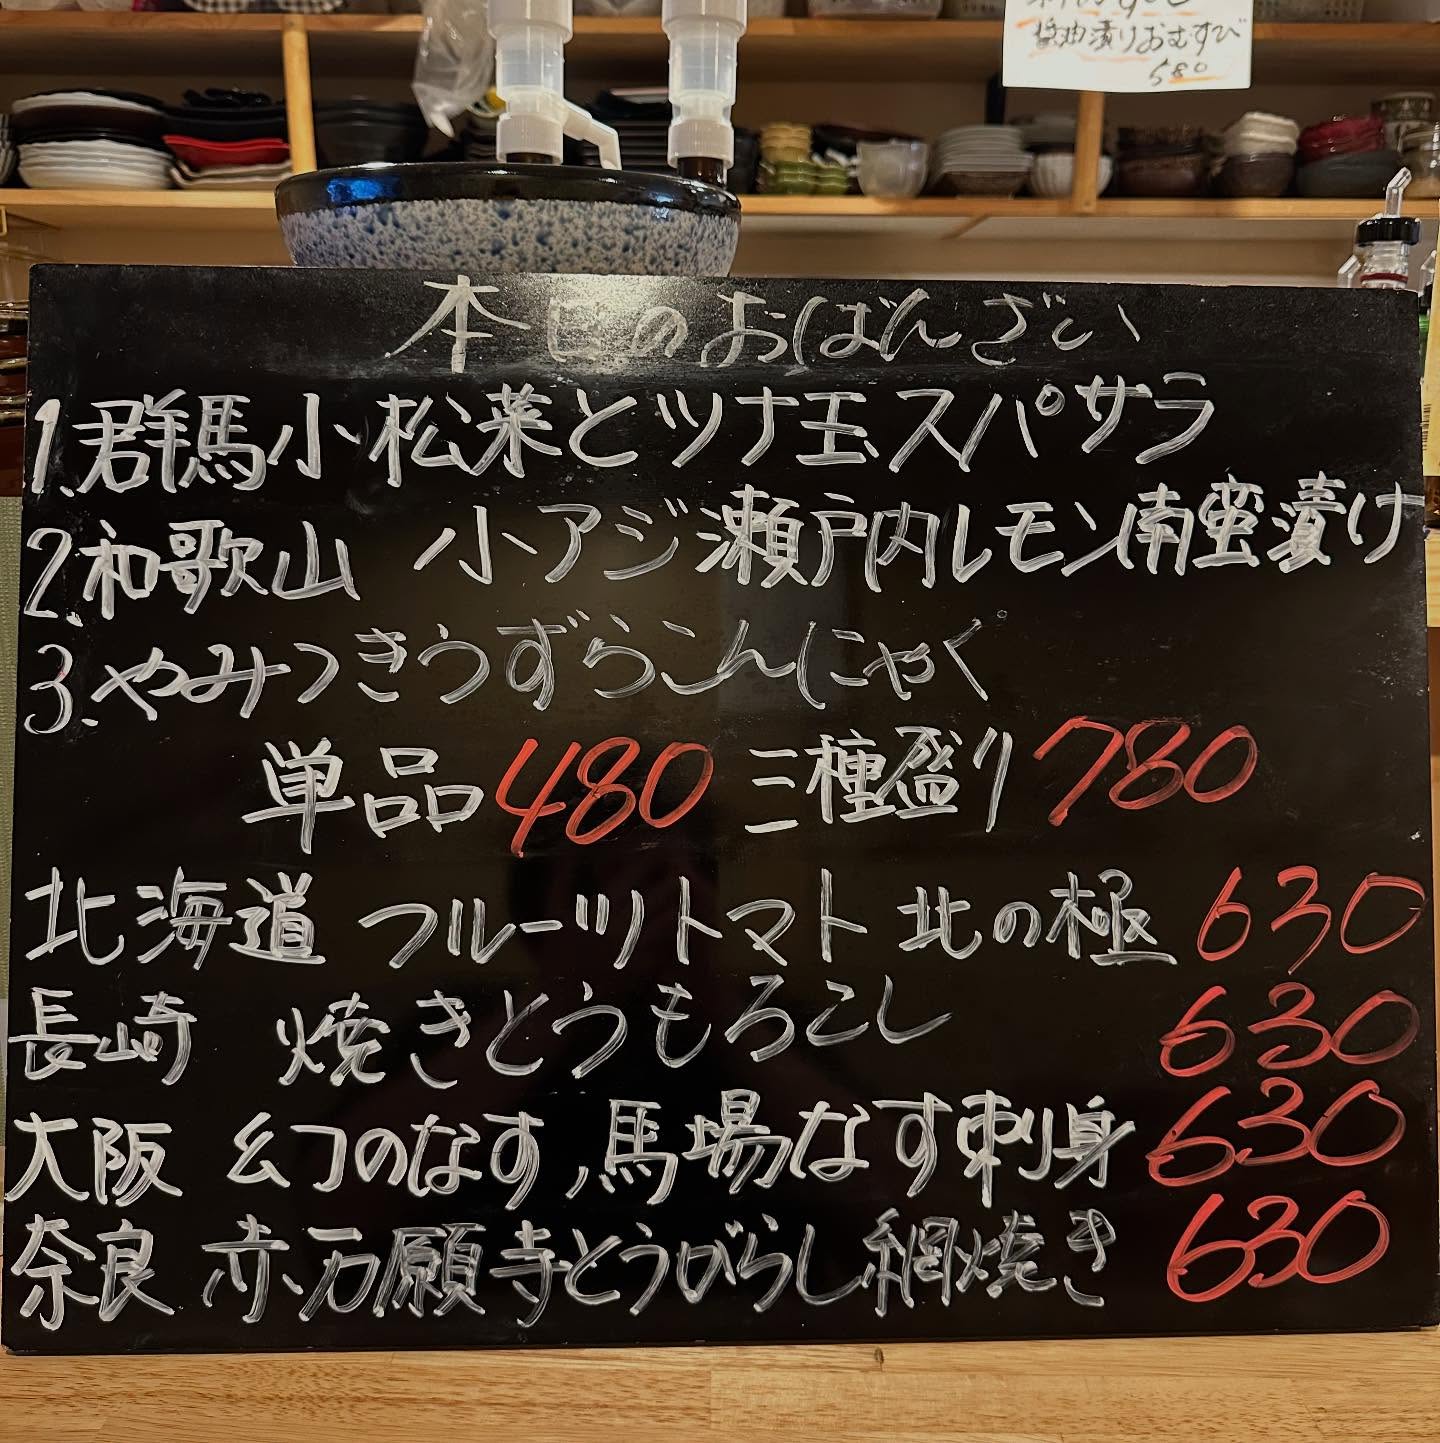 醤油漬りおむすび
580
本日のおばんざい
1.群馬小松菜とツナ玉スパサラ
2.和歌山 小アジ瀬戸内レモン南蛮漬け
3.やみつきうずらこんにゃく
単品480 三種盛り780
北海道 フルーツトマト 北の極 630
長崎 焼きとうもろこし 630
大阪 幻のなす、馬場なす刺身 630
奈良 赤万願寺とうがらし網焼き 630